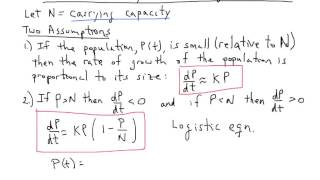 Let N = carrying capacity
Two Assumptions
1) If the population, P(t), is small (relative to N)
then the rate of growth of the population is
proportional to its size: dP/dt ≈ KP
2) If P>N then dP/dt < 0 and if P<N then dP/dt > 0
dP/dt = KP(1 - P/N) Logistic eqn.
P(t) =